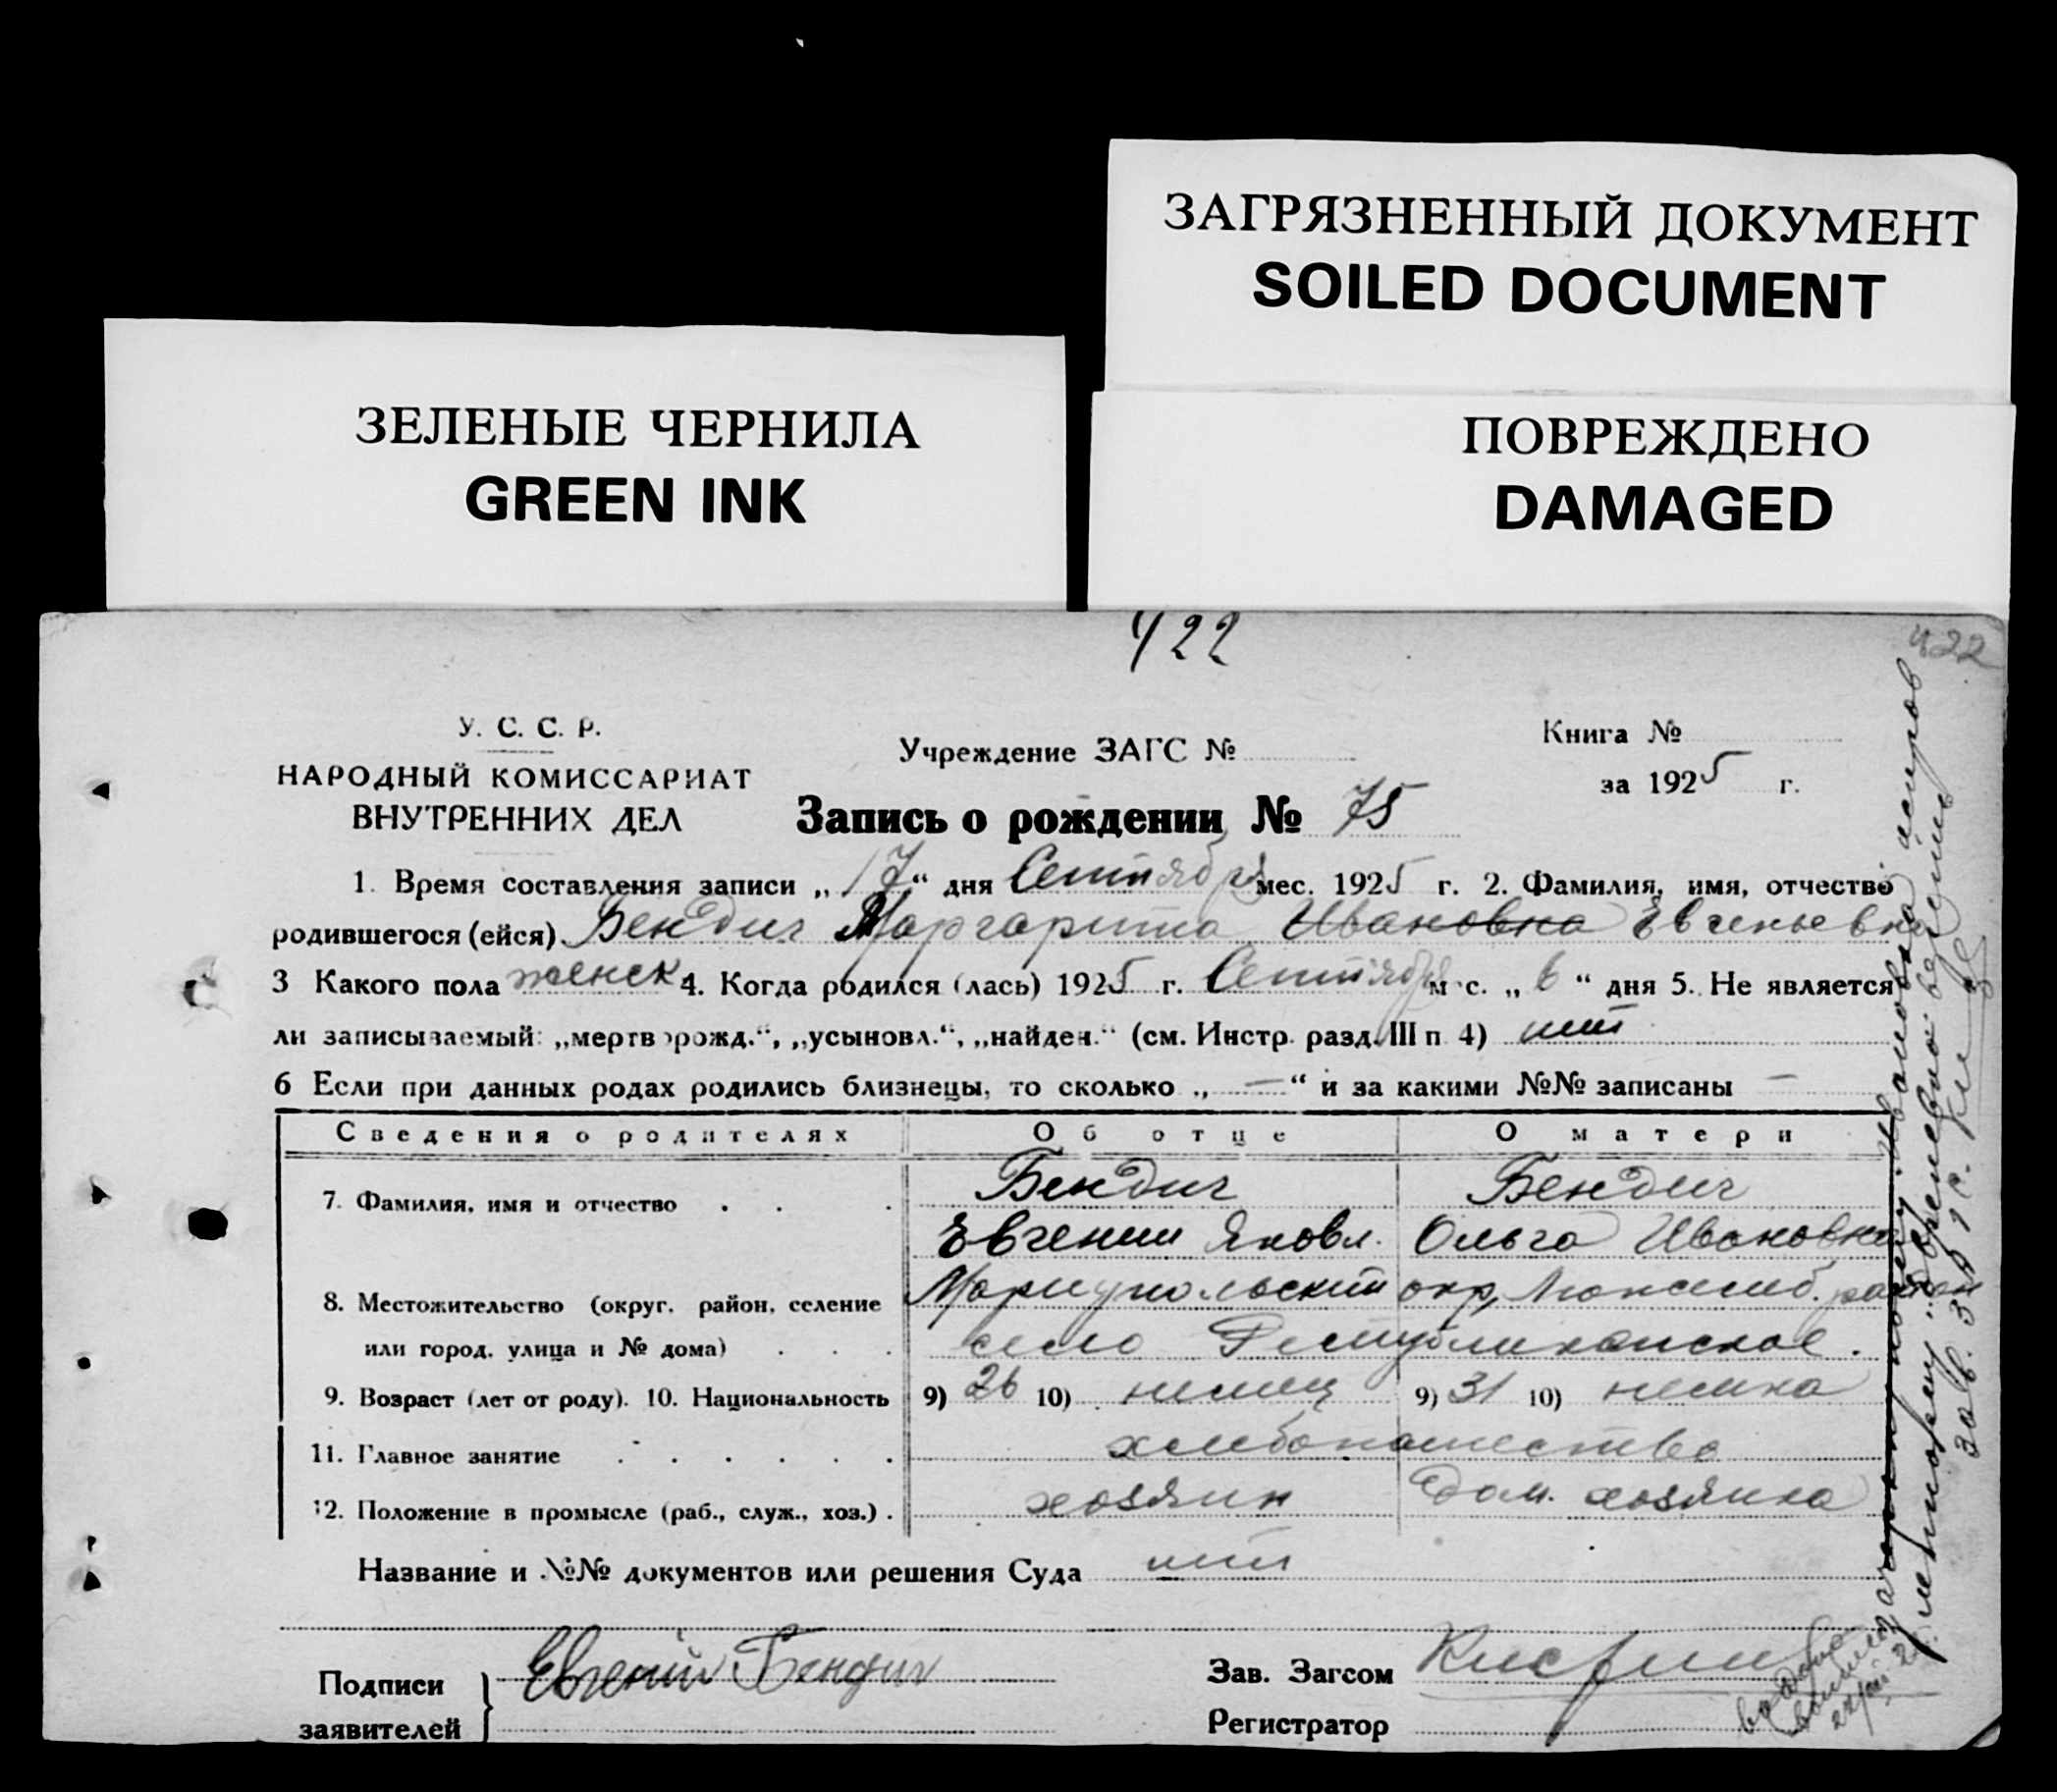 ЗАГРЯЗНЕННЫЙ ДОКУМЕНТ
SOILED DOCUMENT
ЗЕЛЕНЫЕ ЧЕРНИЛА
GREEN INK
ПОВРЕЖДЕНО
DAMAGED
422
422
У. С. С. Р.
НАРОДНЫЙ КОМИССАРИАТ
ВНУТРЕННИХ ДЕЛ
Учреждение ЗАГС №
Книга №
за 1925 г.
Запись о рождении № 75
1. Время составления записи „17“ дня Сентября мес. 1925 г. 2. Фамилия, имя, отчество
родившегося (ейся) Бендич Маргарита Ивановна Евгеньевна
3 Какого пола женск 4. Когда родился (лась) 1925 г. Сентября мес. „6“ дня 5. Не является
ли записываемый: „мертворожд.“, „усыновл.“, „найден.“ (см. Инстр. разд. III п 4) нет
6 Если при данных родах родились близнецы, то сколько „—“ и за какими №№ записаны —
Сведения о родителях Об отце О матери
7. Фамилия, имя и отчество Бендич Бендич
Евгений Яковл. Ольга Ивановна
8. Местожительство (округ, район, селение Мариупольский окр, район
или город, улица и № дома) село Республиканское.
9. Возраст (лет от роду). 10. Национальность 9) 26 10) немец 9) 31 10) немка
11. Главное занятие хлебопашество
12. Положение в промысле (раб., служ., хоз.) хозяин Дом. хозяйка
Название и №№ документов или решения Суда нет
Подписи заявителей Евгений Бендич
Зав. Загсом
Регистратор
Зачеркнутому: Ивановна
Зав. ЗАГС.